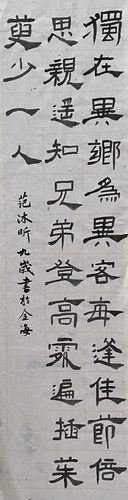 獨在異鄉為異客每逢佳節倍
思親遥知兄弟登高處遍插茱
萸少一人
范沐昕九歲書於金海